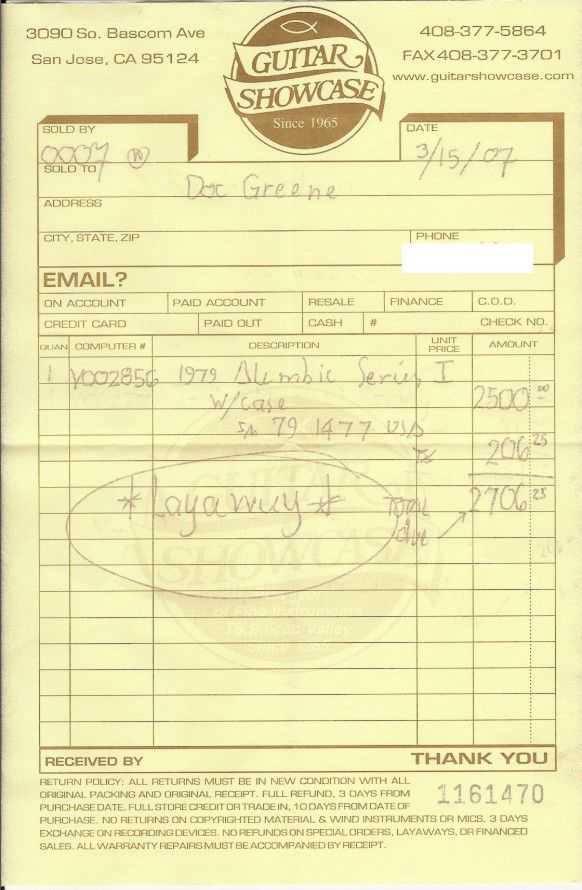 3090 So. Bascom Ave
San Jose, CA 95124
GUITAR
SHOWCASE
Since 1965
408-377-5864
FAX 408-377-3701
www.guitarshowcase.com
SOLD BY
0007
DATE
3/15/07
SOLD TO
Doc Greene
ADDRESS
CITY, STATE, ZIP
PHONE
EMAIL?
ON ACCOUNT PAID ACCOUNT RESALE FINANCE C.O.D.
CREDIT CARD PAID OUT CASH # CHECK NO.
QUAN COMPUTER # DESCRIPTION UNIT PRICE AMOUNT
1 V002856 1979 Alembic Series I
w/case 2500 00
s/n 79 1477 USA
TX 206 25
*Layaway* Total due 2706 25
GUITAR
SHOWCASE
of Fine Instruments
To Silicon Valley
Since 1965
RECEIVED BY THANK YOU
RETURN POLICY: ALL RETURNS MUST BE IN NEW CONDITION WITH ALL
ORIGINAL PACKING AND ORIGINAL RECEIPT. FULL REFUND, 3 DAYS FROM
PURCHASE DATE. FULL STORE CREDIT OR TRADE IN, 10 DAYS FROM DATE OF
PURCHASE. NO RETURNS ON COPYRIGHTED MATERIAL & WIND INSTRUMENTS OR MICS. 3 DAYS
EXCHANGE ON RECORDING DEVICES. NO REFUNDS ON SPECIAL ORDERS, LAYAWAYS, OR FINANCED
SALES. ALL WARRANTY REPAIRS MUST BE ACCOMPANIED BY RECEIPT.
1161470